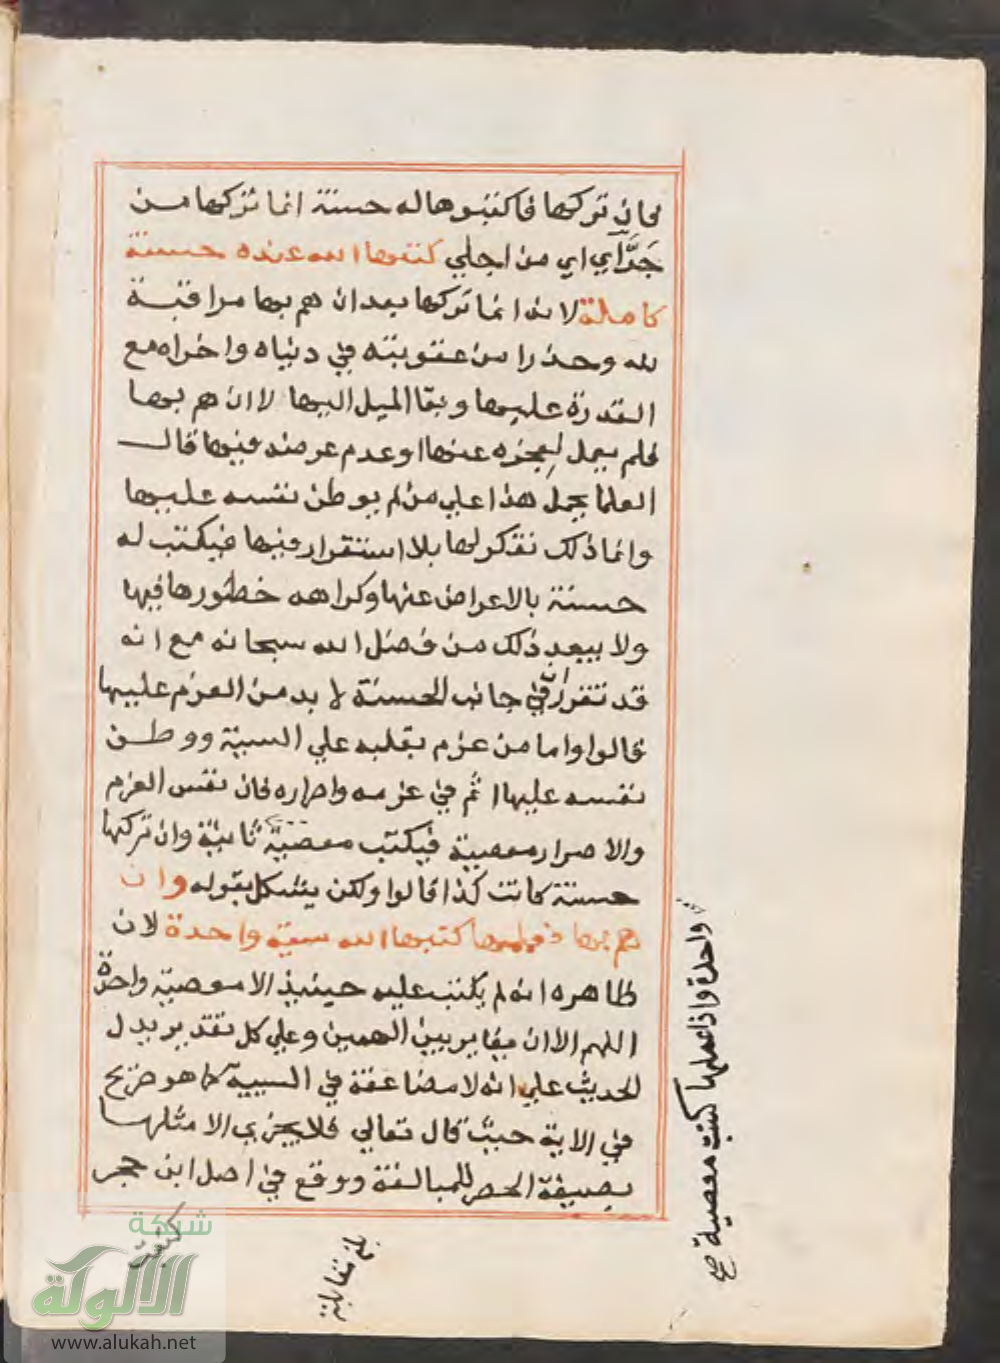 فان تركها فاكتبوها له حسنة انما تركها من
جَرَّاي اي من اجلي كتبها الله عنده حسنة
كاملة لانه انما تركها بعد ان هم بها مراقبة
لله وحذرا من عقوبته في دنياه واخراه مع
القدرة عليها وبقا الميل اليها لا ان هم بها
فلم يعمل لعجزه عنها او عدم غرضه فيها قال
العلما يحمل هذا علي من لم يوطن نفسه عليها
وانما ذلك تفكر لها بلا استقرار فيها فيكتب له
حسنة بالاعراض عنها وكراهه خطورها فيها
ولا يبعد ذلك من فضل الله سبحانه مع انه
قد تتقرر ان في جانب الحسنة لا بد من العزم عليها
قالوا واما من عزم بقلبه علي السيئة ووطن
نفسه عليها اثم في عزمه واصراره فان نفس العزم
والاصرار معصية فيكتب معصية ثانية وان تركها
حسنة كانت كذا قالوا ولكن يشكل بقوله وان
هم بها فعملها كتبها الله سيئة واحدة لان
ظاهره انه لم يكتب عليه حينيذ الا معصية واحدة
اللهم الا ان يغاير بين الهمين وعلي كل تقدير يدل
الحديث علي انه لا مضاعفة في السيية كما هو صريح
في الاية حيث قال تعالي فلا يجزي الا مثلها
بصيغة الحصر للمبالغة ووقع في اصل ابن حجر
واحدة واذا عملها كتبت معصية
صح
بلغ مقابلة
كتبت
شبكة
الألوكة
www.alukah.net